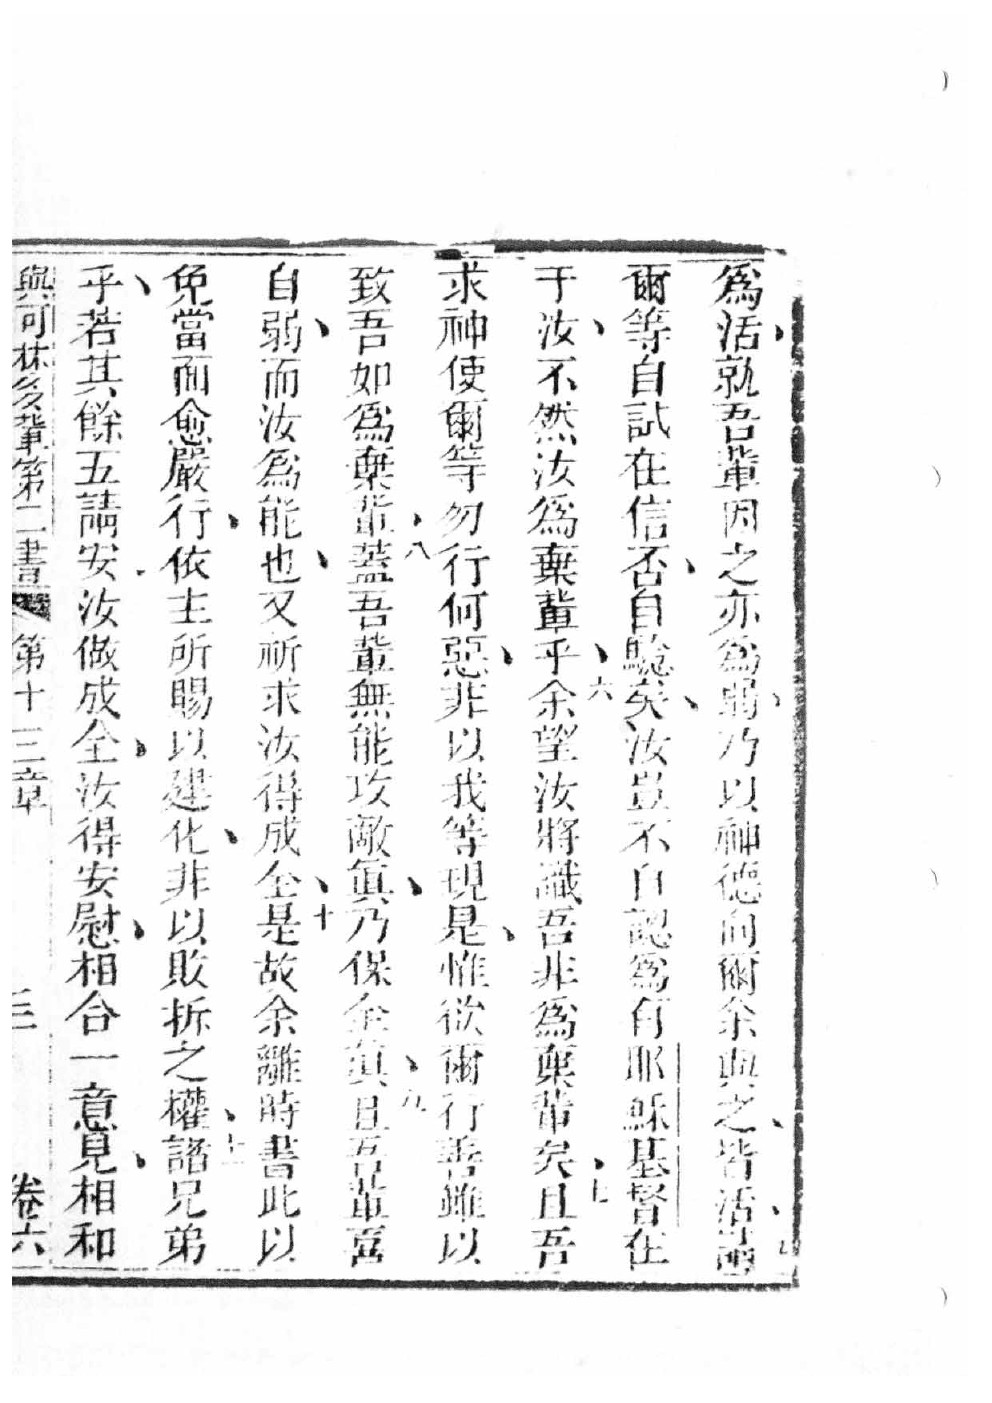 爲活、就吾輩因之亦爲弱、乃以神德向爾余與之、皆活、請
爾等自試在信否、自驗矣、汝豈不自認爲有耶穌基督在
于汝、不然汝爲棄輩乎、六余望汝將識吾非爲棄輩矣、七且吾
求神使爾等勿行何惡、非以我等現是、惟欲爾行善雖以
致吾如爲棄輩、八蓋吾輩無能攻敵眞、乃保全眞、九且吾輩喜
自弱、而汝爲能也、又祈求汝得成全、十是故余離時書此以
免當面愈嚴行、依主所賜以建化、非以敗拆之權、十一諸兄弟
乎、若其餘五請安汝做成全、汝得安慰、相合一意見、相和
與可林多輩第二書 第十三章 三 卷六